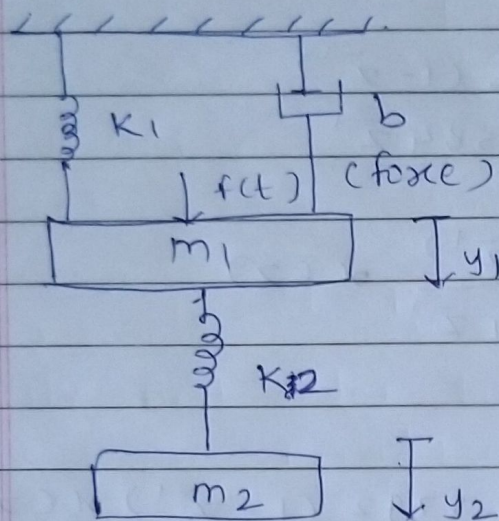 K1
b
f(t)
(force)
m1
y1
K2
m2
y2